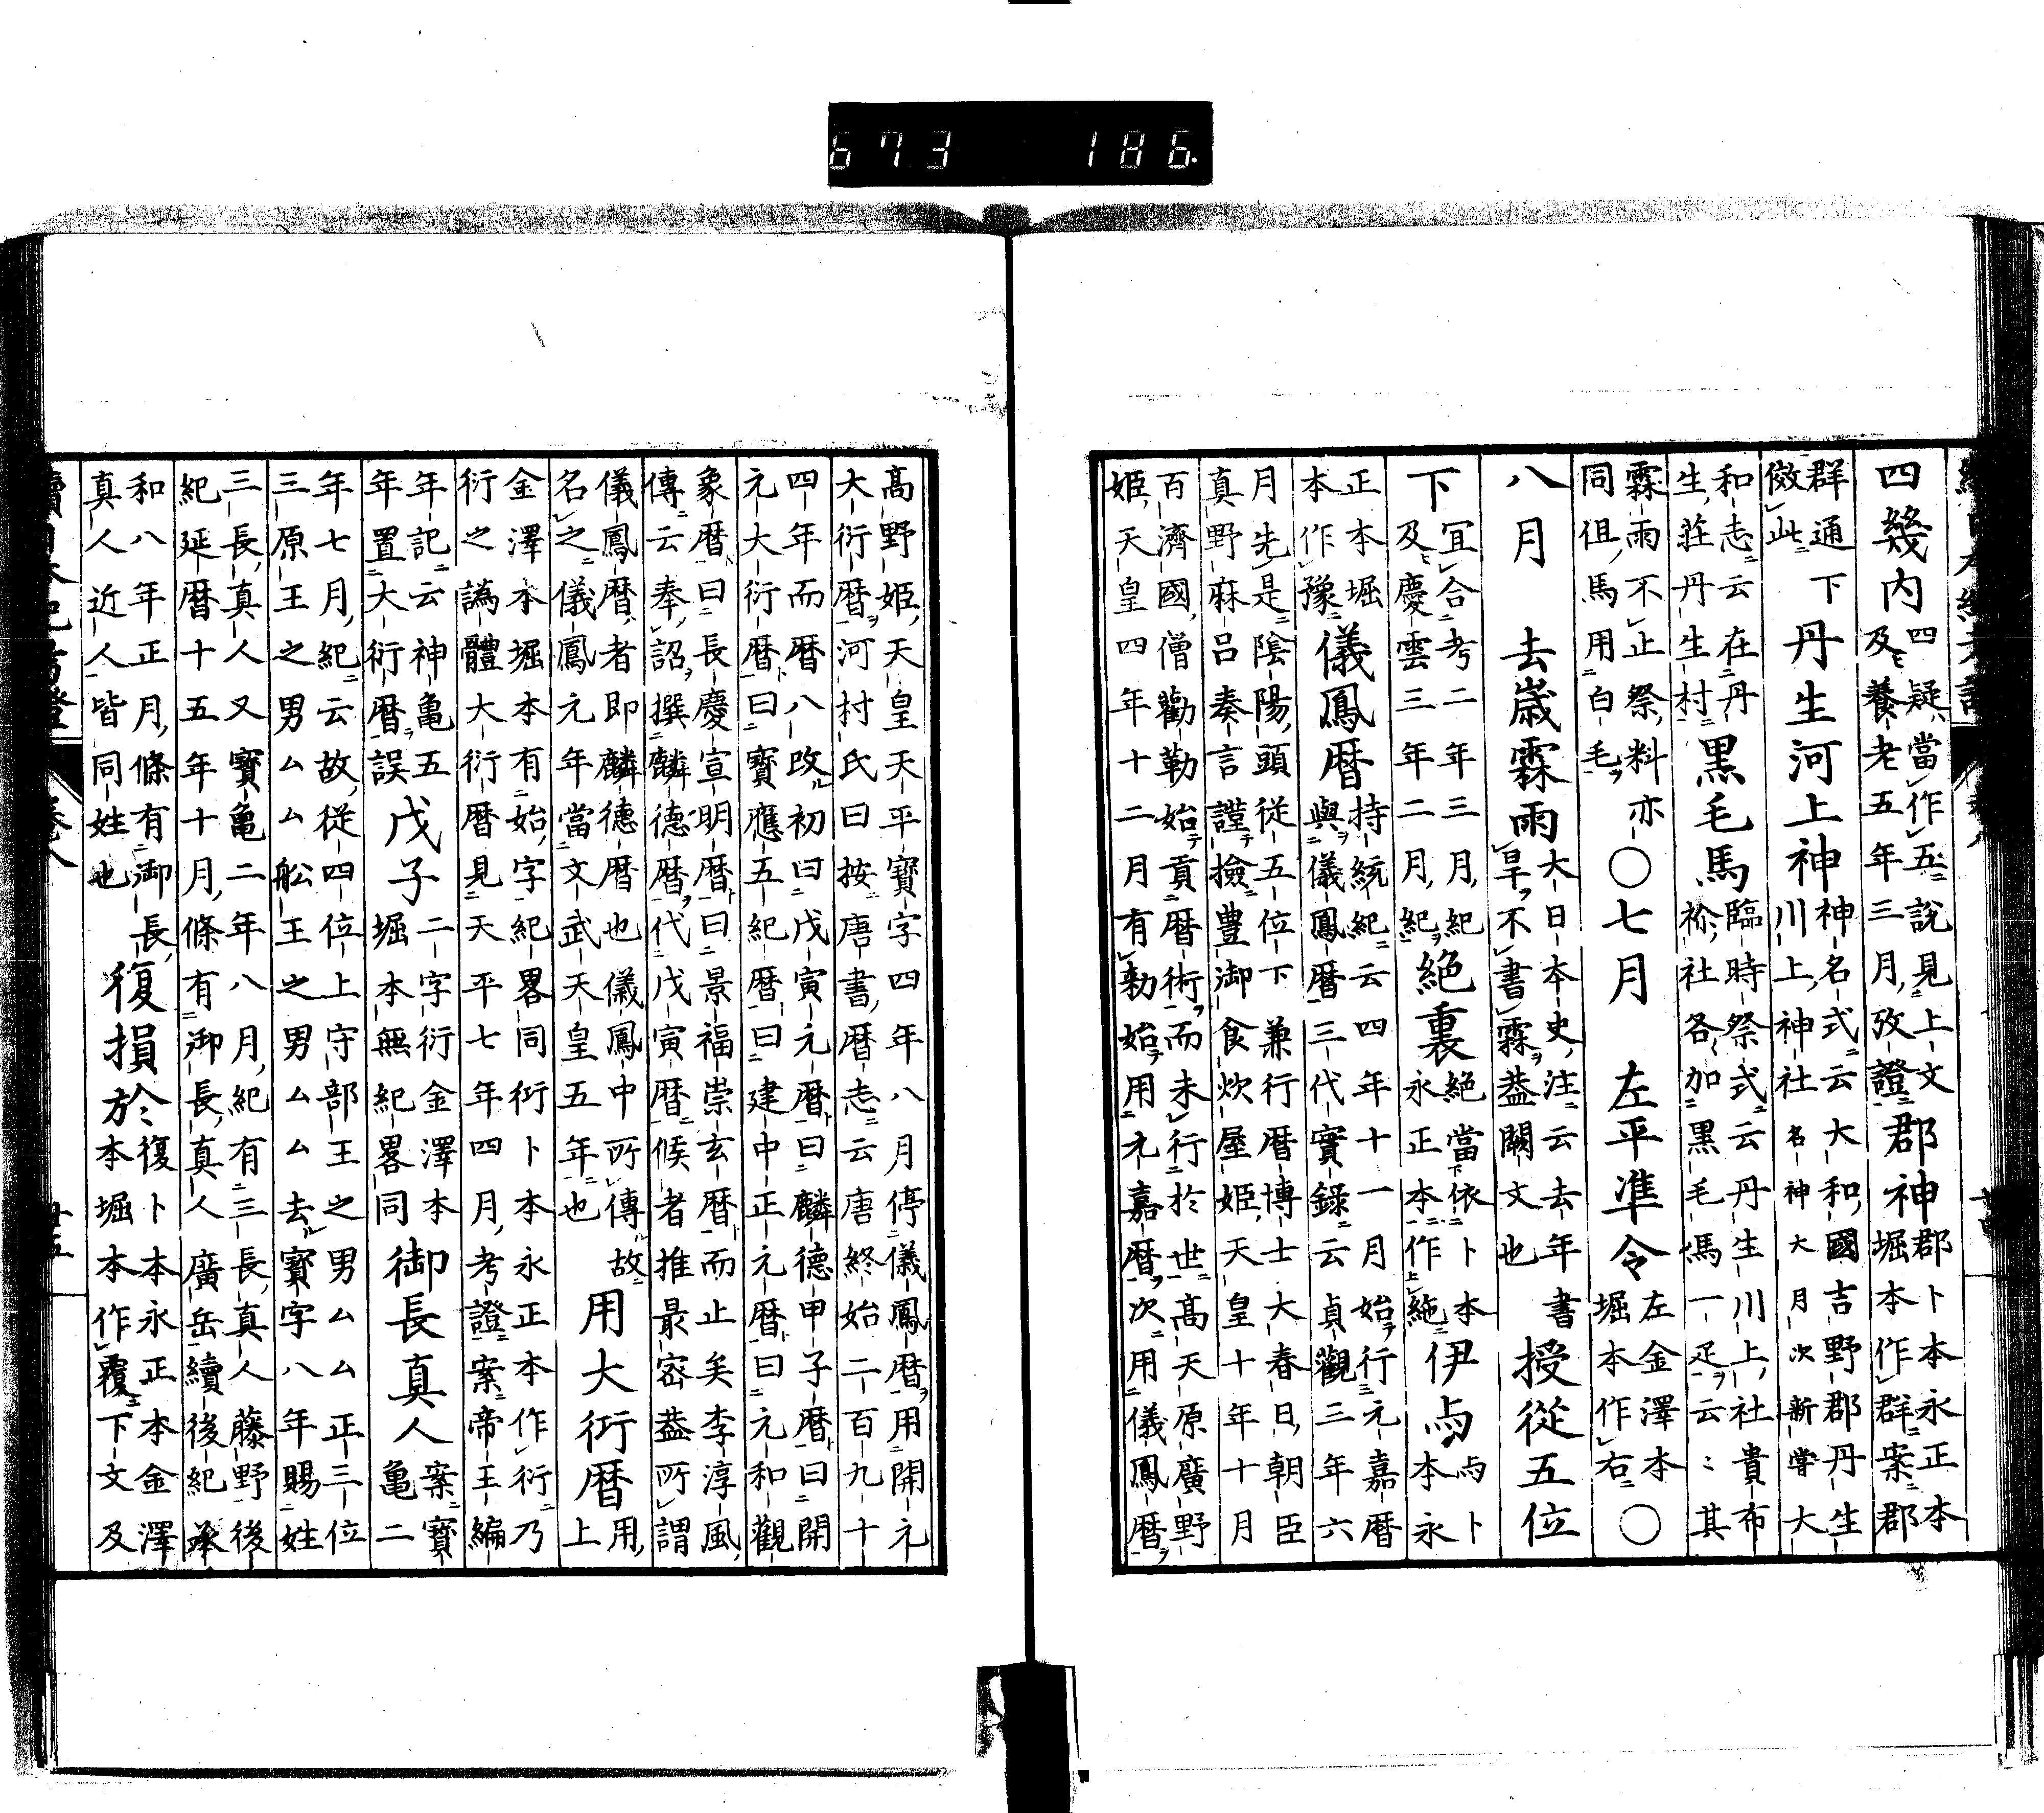 四幾内
四疑當作五説見上文
及養老五年三月攷證
郡神
郡卜本永正本
堀本作群案郡
群通下
倣此
丹生河上神
神名式云大和國吉野郡丹生
川上神社名神大月次新嘗大
和志云在丹
生莊丹生村
黒毛馬
臨時祭式云丹生川上社貴布
祢社各加黒毛馬一疋云〻其
霖雨不止祭料亦
同但馬用白毛
○七月　左平準令
左金澤本
堀本作右
○
八月　去歳霖雨
大日本史注云去年書
旱不書霖葢闕文也
授從五位
下
冝合考二年三月紀
及慶雲三年二月紀
絶裏
絶當依卜本
永正本作絁
伊与
与卜
本永
正本堀
本作豫
儀鳳暦
持統紀云四年十一月始行元嘉暦
與儀鳳暦三代實錄云貞觀三年六
月先是陰陽頭從五位下兼行暦博士大春日朝臣
真野麻呂奏言謹撿豊御食炊屋姫天皇十年十月
百濟國僧勸勒始貢暦術而未行於世髙天原廣野
姫天皇四年十二月有勅始用元嘉暦次用儀鳳暦
髙野姫天皇天平寳字四年八月停儀鳳暦用開元
大衍暦河村氏曰按唐書暦志云唐終始二百九十
四年而暦八改初曰戊寅元暦曰麟德甲子暦曰開
元大衍暦曰寳應五紀暦曰建中正元暦曰元和觀
象暦曰長慶宣明暦曰景福崇玄暦而止矣李淳風
傳云奉詔撰麟德暦代戊寅暦候者推最宻葢所謂
儀鳳暦者即麟德暦也儀鳳中所傳故
名之儀鳳元年當文武天皇五年也
用大衍暦
用
上
金澤本堀本有始字紀畧同衍卜本永正本作衍乃
衍之譌體大衍暦見天平七年四月考證案帝王編
年記云神亀五
年置大衍暦誤
戊子
二字衍金澤本
堀本無紀畧同
御長真人
案寳
亀二
年七月紀云故從四位上守部王之男ムム正三位
三原王之男ムム船王之男ムム去寳字八年賜姓
三長真人又寳亀二年八月紀有三長真人藤野後
紀延暦十五年十月條有御長真人廣岳續後紀承
和八年正月條有御長
真人近人皆同姓也
復損於
復卜本永正本金澤
本堀本作覆下文及
673 186.